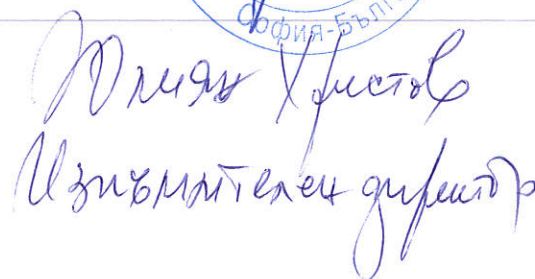 София-Бълг
Юлиян Христов
Изпълнителен директор